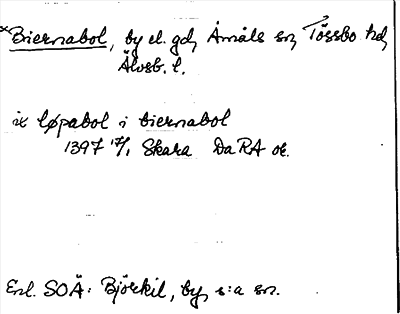 *Biernabol, by el. gd, Åmåls sn, Tössbo hd,
Älvsb. l.
ix løpabol i biernabol
1397 17/1 Skara DaRA or.
Enl. SOÄ: Björkil, by, s:a sn.